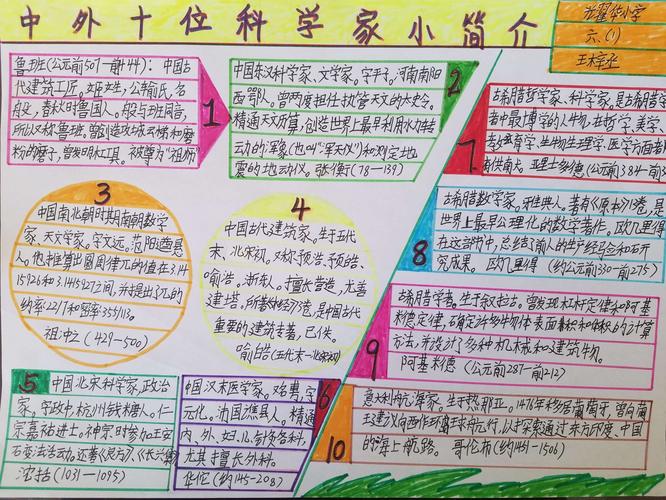 中外十位科学家小简介
光翟华小学
六.(1)
王梓丞
鲁班(公元前507一前444):中国古
代建筑工匠。姬姓,公输氏,名
般,春秋时鲁国人。般与班同音,
所以又称鲁班,曾创造攻城云梯和磨
粉的磨子,曾发明木工具。被尊为“祖师”
1
中国东汉科学家、文学家。字平子,河南南阳
西鄂人。曾两度担任执管天文的太史令。
精通天文历算,创造世界上最早利用水力转
动的浑象(也叫“浑天仪”)和测定地
震的地动仪。张衡(78一139)
2
3
中国南北朝时期南朝数学
家、天文学家。字文远。范阳遒县
人。他推算出圆周律元的值在3.14
15926和3.1415927之间,并提出了元的
约率22/7和密率355/113。
祖冲之(429-500)
4
中国古代建筑家。生于五代
末、北宋初。又称预浩、预皓、
喻浩。浙东人。擅长营造,尤善
建塔。所著《木经》3卷,是中国古代
重要的建筑专著,已佚。
喻皓(五代末一北宋初)
5
中国北宋科学家,政治
家。字政中,杭州钱糖人。仁
宗嘉祐进士。神宗时参加王安
石变法活动。还著《良方》、《长兴集》
沈括(1031一1095)
6
中国汉末医学家。又名旉,字
元化。沛国谯县人。精通
内、外、妇、儿、针灸各科。
尤其擅长外科。
华佗(约145-208)
7
古希腊哲学家、科学家,是古希腊学
者中最博学的人物,在哲学、美学、
教育学、生物生理学、医学方面者
亚里士多德(公元前384-前3
8
古希腊数学家。雅典人。著有《原本》13卷,是
世界上最早公理化的数学著作。欧几里得
在这部书中,总结了前人的生产经验和研
究成果。 欧几里得 (约公元前330一前275)
9
古希腊学者。生于叙拉古。曾发现杠杆定律和阿基
米德定律,确定许多物体表面积和体积的计算
方法,并设计了多种机械和建筑物。
阿基米德 (公元前287一前212)
10
意大利航海家。生于热那亚。1476年移居葡萄牙,曾向葡
王建议向西作环球航行,以探索通过东方印度、中国
的海上航路。 哥伦布(约1451一1506)